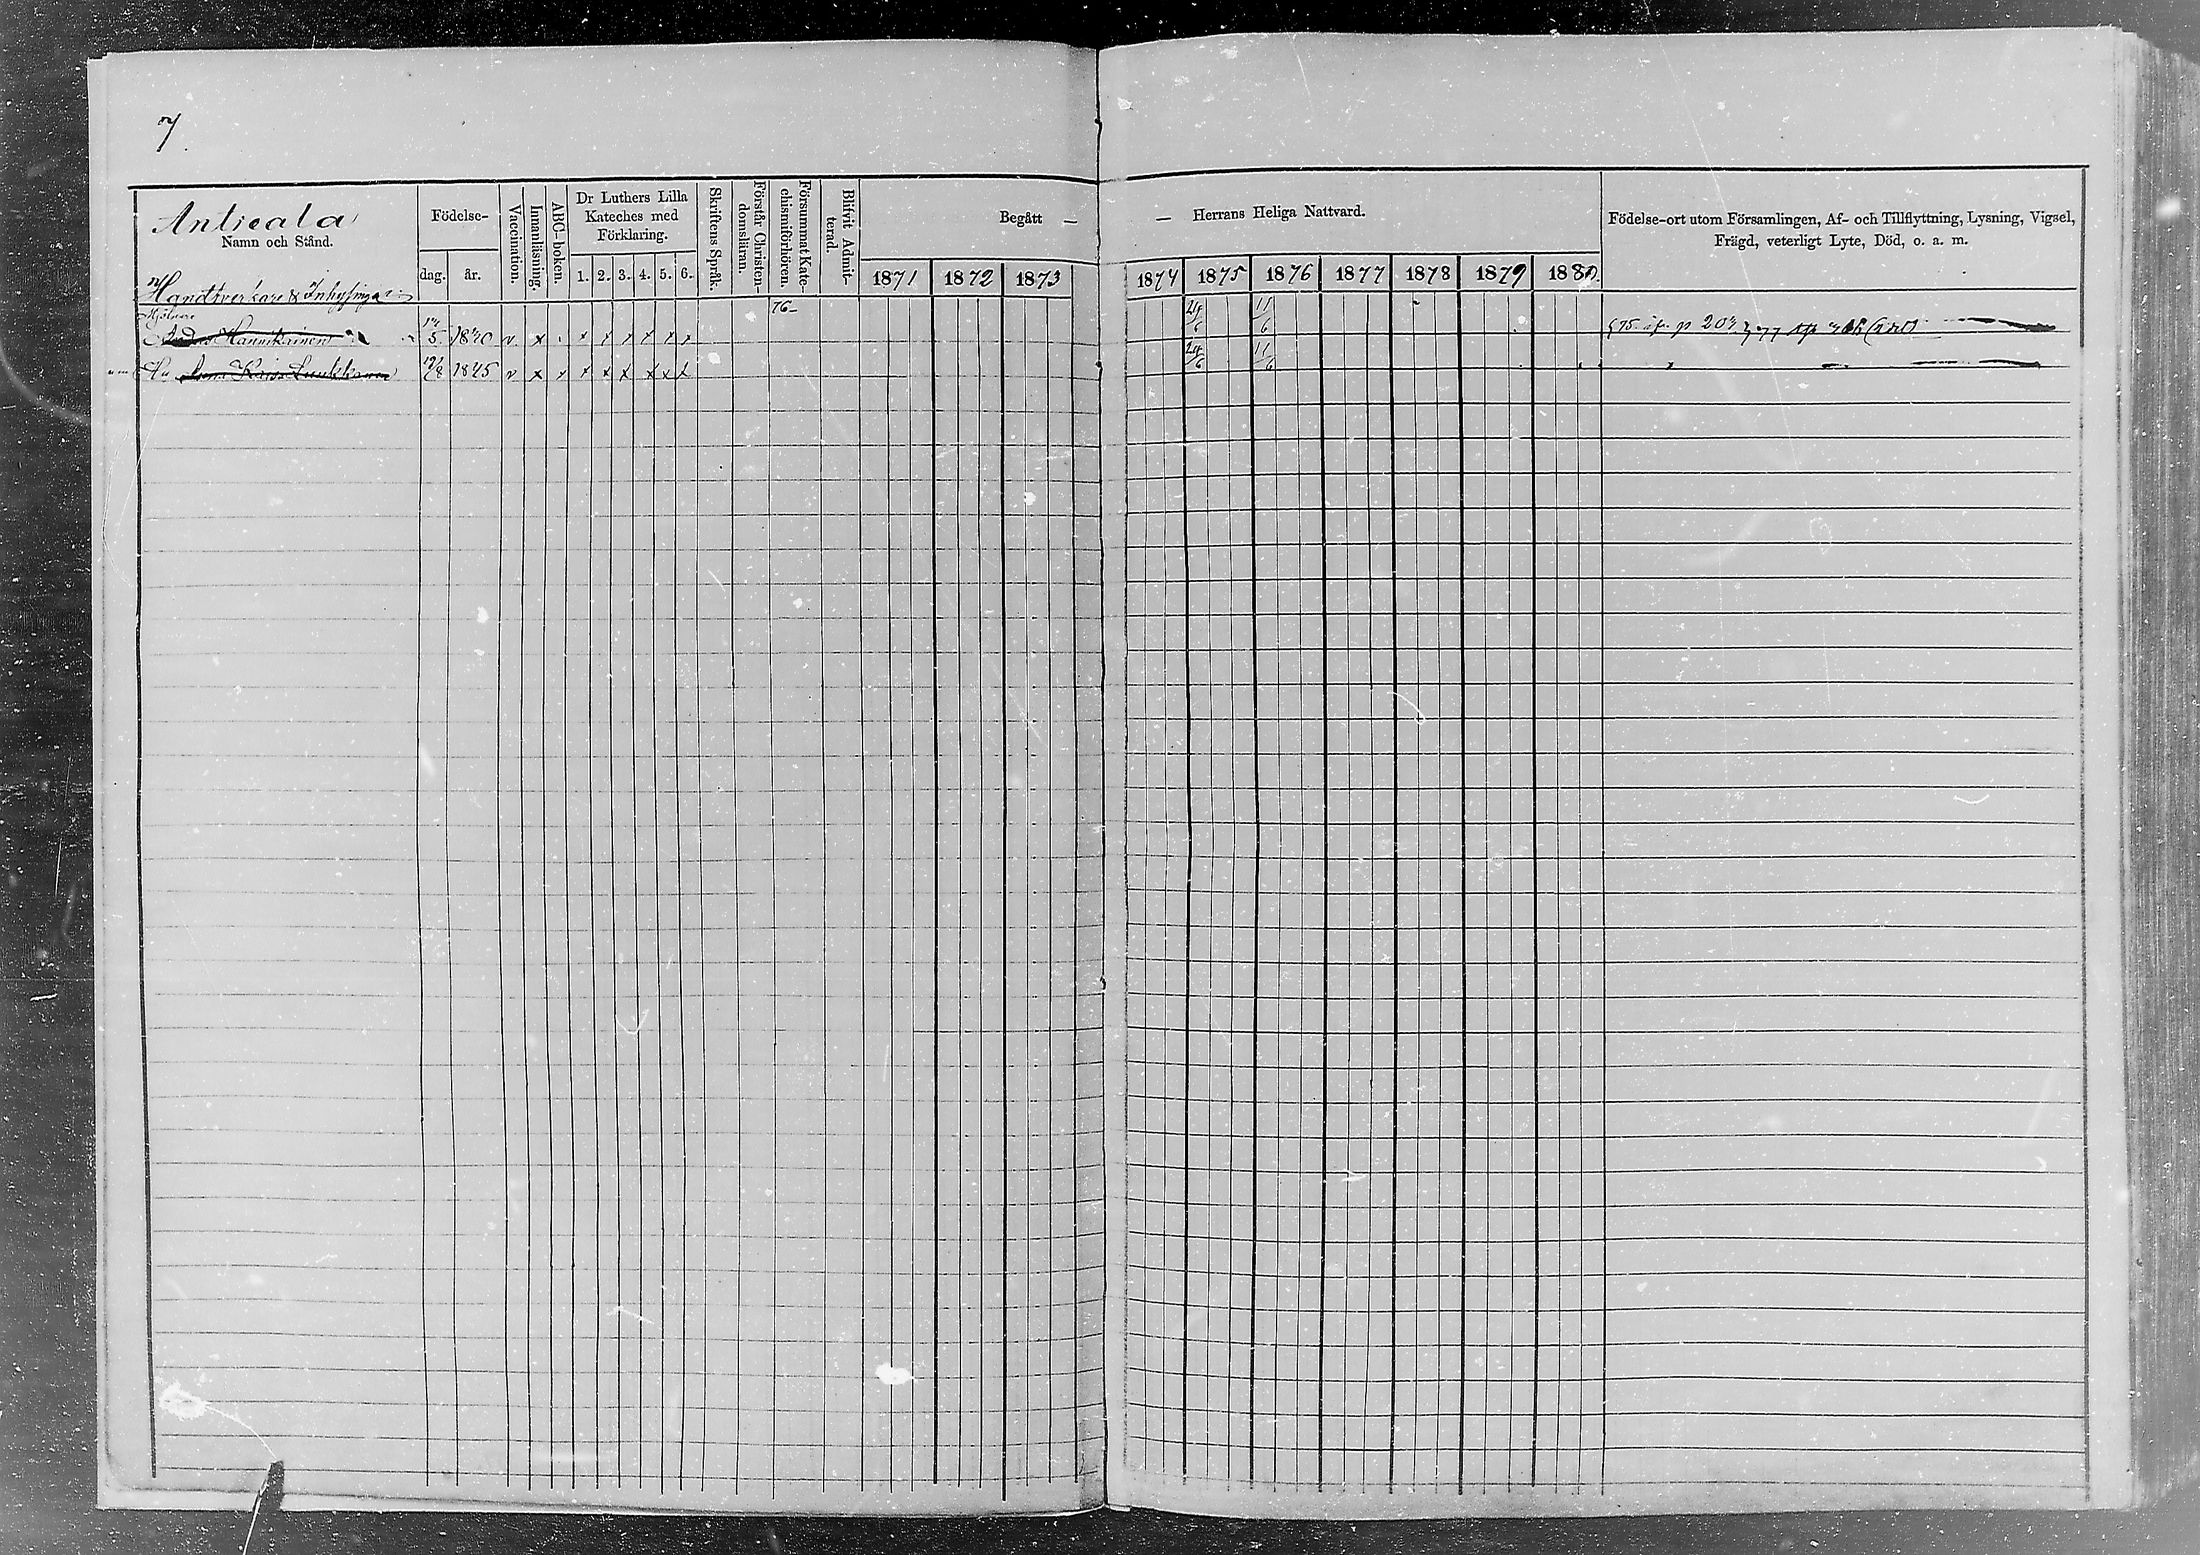 7
Antreala
Namn och Stånd.
Handtverkare & Inhysingar
Födelse-
dag. år.
Vaccination.
Innanläsning.
ABC-boken.
Dr Luthers Lilla
Kateches med
Förklaring.
1. 2. 3. 4. 5. 6.
Skriftens Språk.
Förstår Christen-
domsläran.
Försummat Kate-
chismiförhören.
Blifvit Admit-
terad.
Begått —
1871 1872 1873
— Herrans Heliga Nattvard.
1874 1875 1876 1877 1878 1879 1880.
Födelse-ort utom Församlingen, Af- och Tillflyttning, Lysning, Vigsel,
Frägd, veterligt Lyte, Död, o. a. m.
Mjölnare 76
Hannikainen 5 1840 v x x x x x x x 24/6 11/6
Hu Anna Kaisa Luukkanen 1845 v x x x x x x x x 24/6 11/6